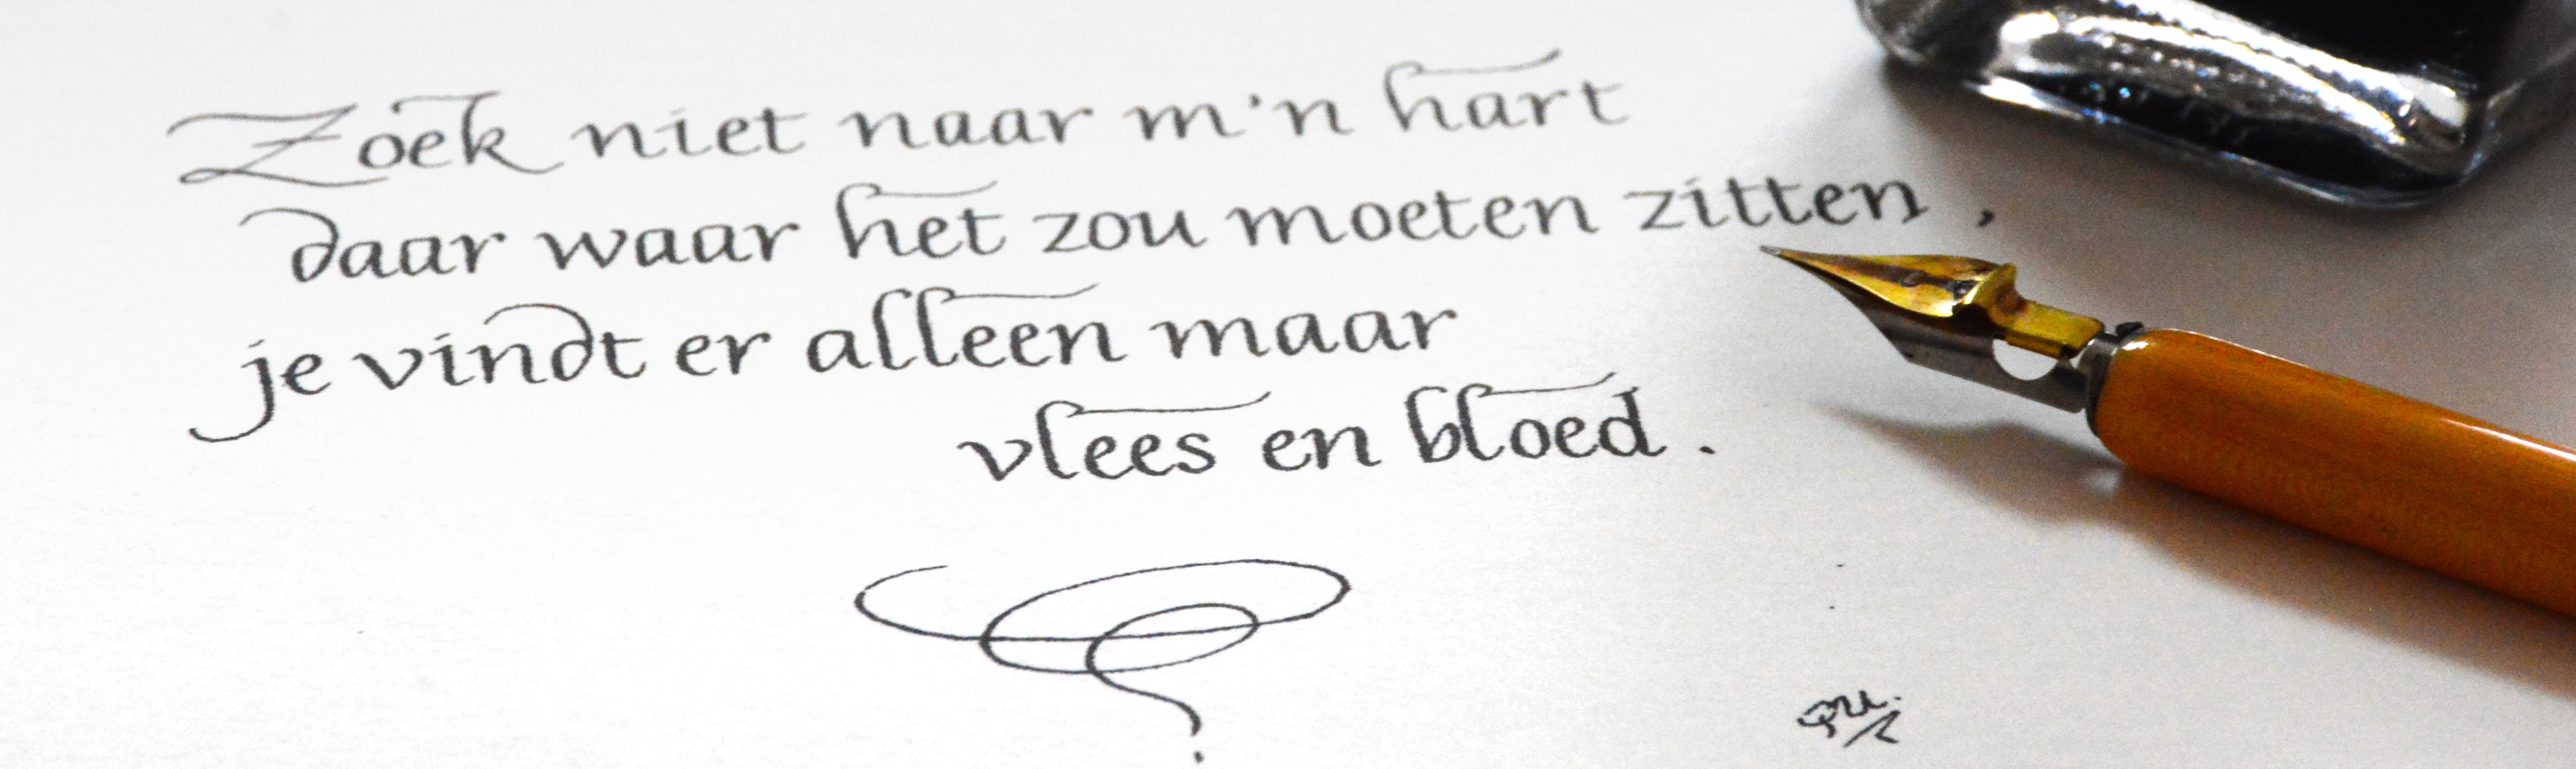 Zoek niet naar m'n hart
daar waar het zou moeten zitten,
je vindt er alleen maar
vlees en bloed.